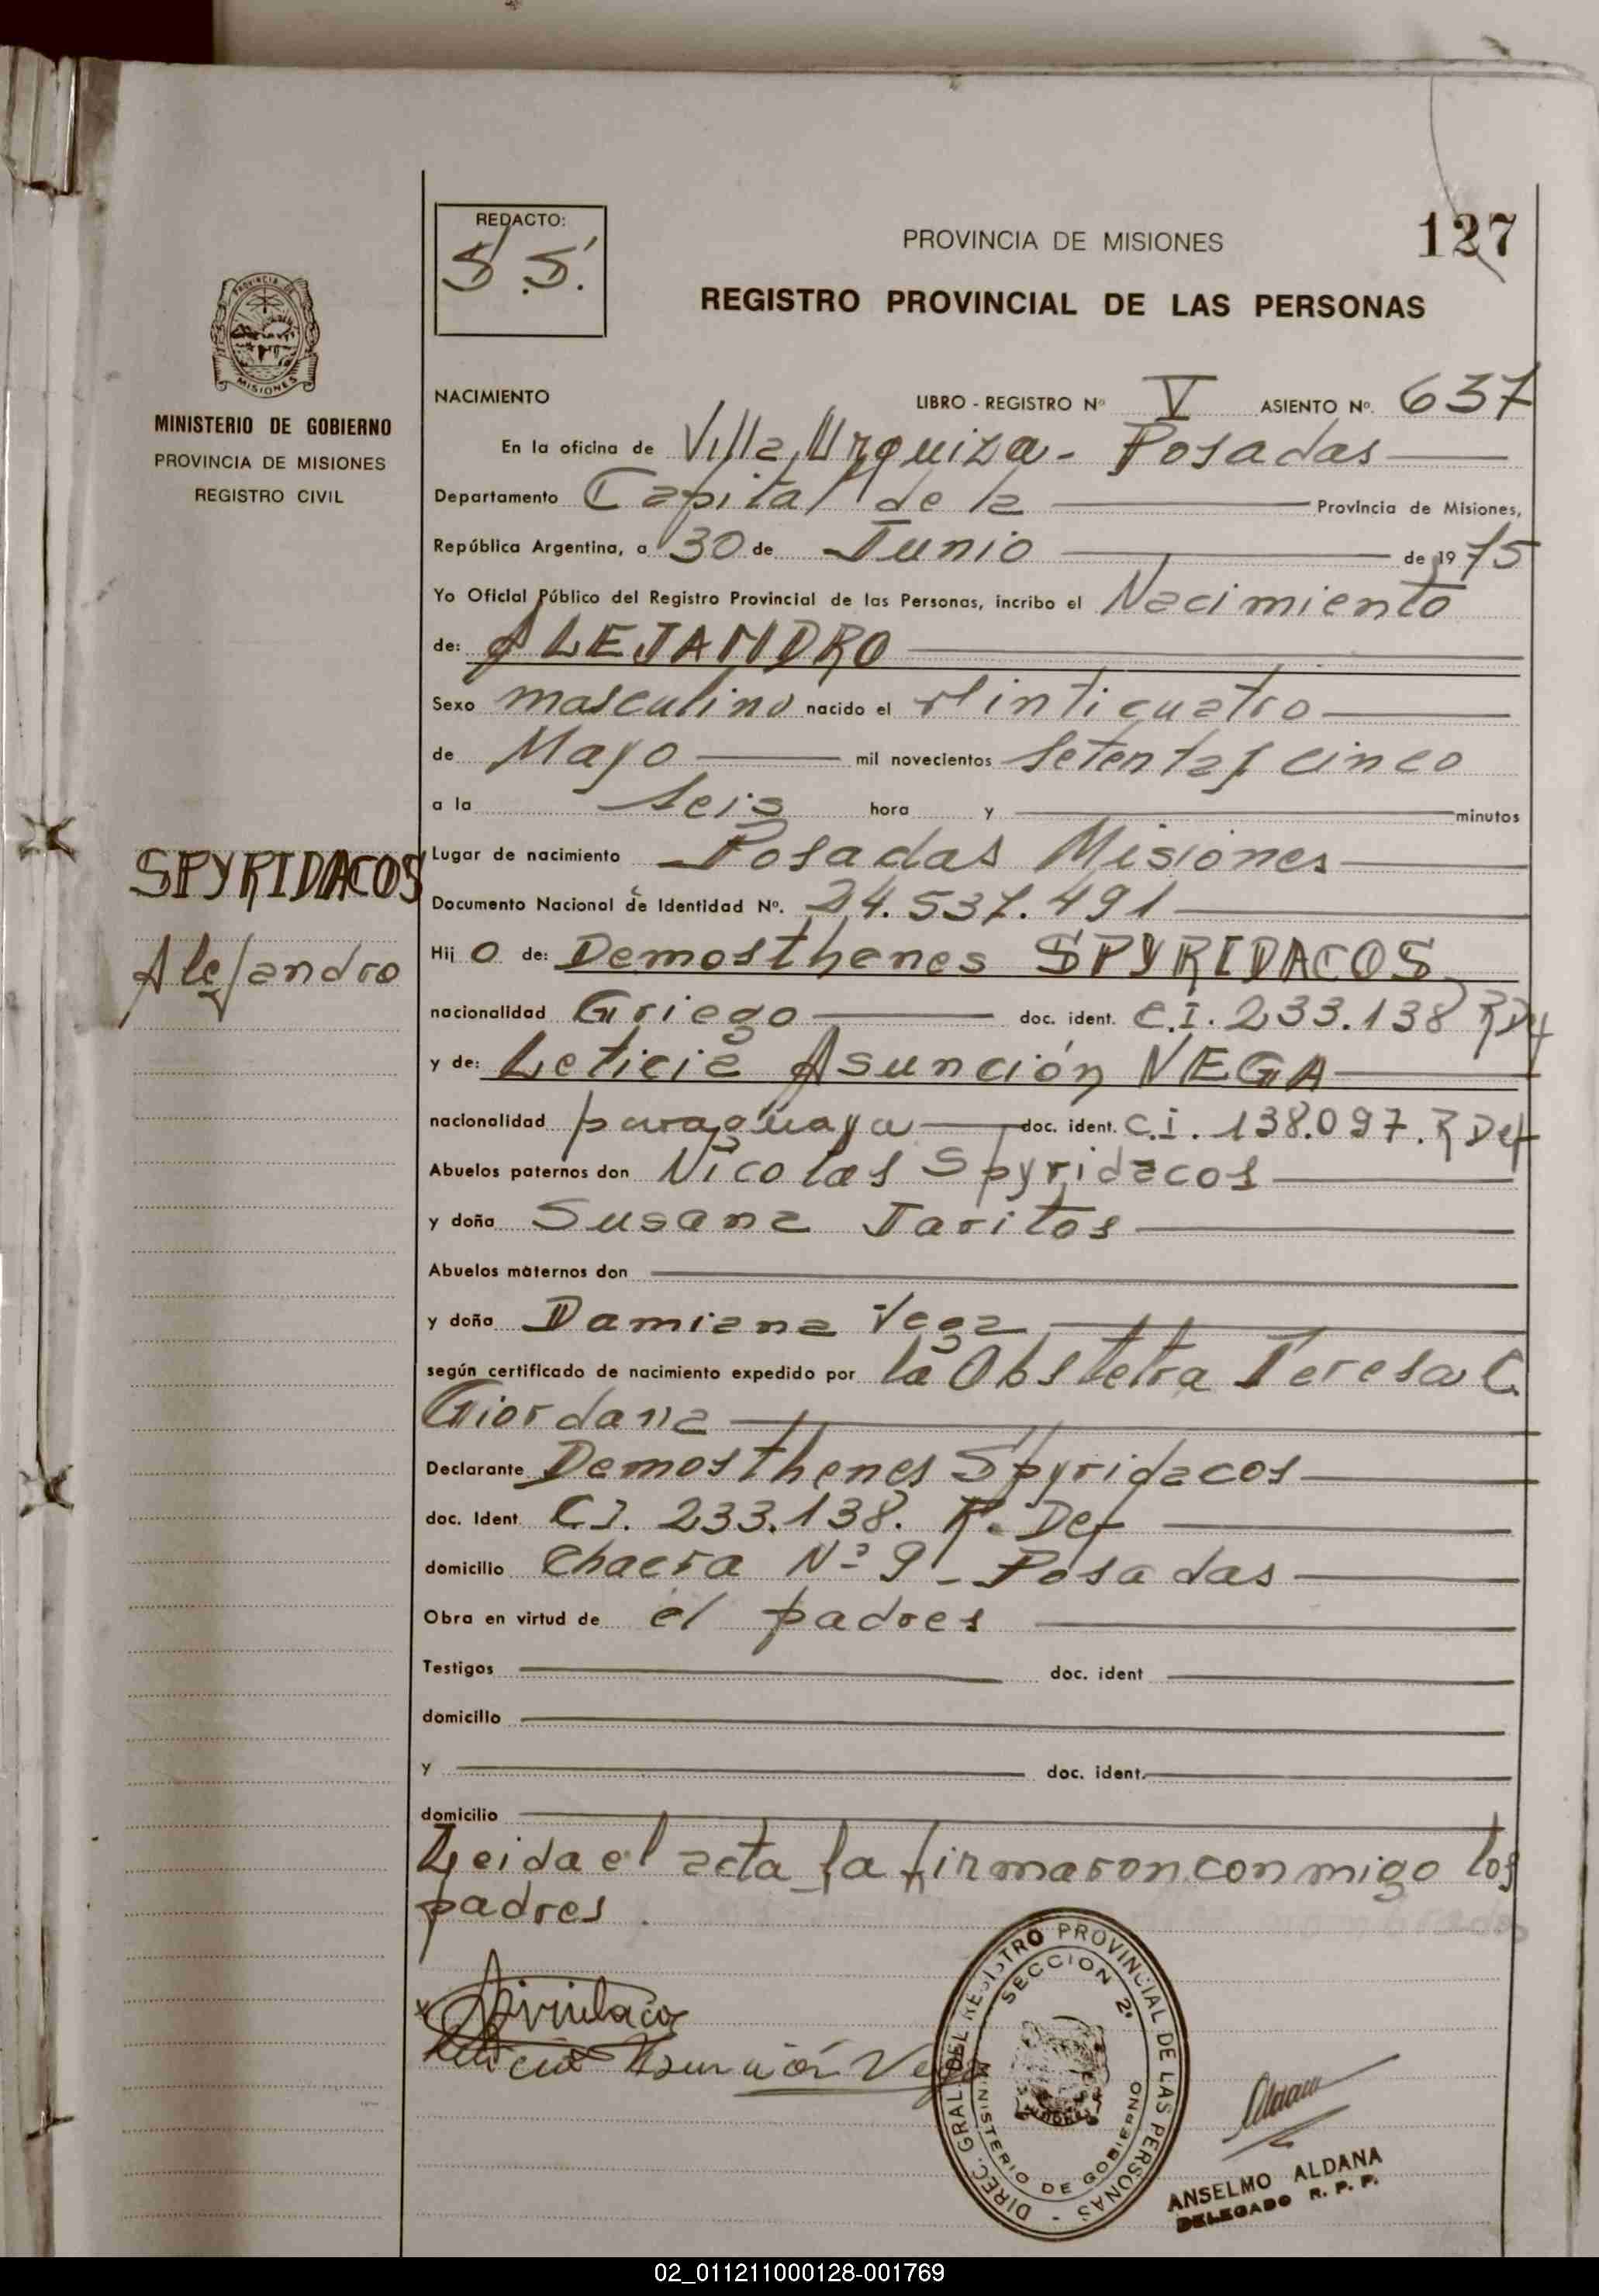 REDACTO:
S.S.
PROVINCIA DE MISIONES
127
REGISTRO PROVINCIAL DE LAS PERSONAS
PROVINCIA DE
MISIONES
MINISTERIO DE GOBIERNO
PROVINCIA DE MISIONES
REGISTRO CIVIL
SPYRIDACOS
Alejandro
NACIMIENTO LIBRO - REGISTRO Nº V ASIENTO Nº. 637
En la oficina de Villa Urquiza - Posadas
Departamento Capital de la Provincia de Misiones,
República Argentina, a 30 de Junio de 1975
Yo Oficial Público del Registro Provincial de las Personas, incribo el Nacimiento
de: ALEJANDRO
Sexo masculino nacido el Vinticuatro
de Mayo mil novecientos setenta y cinco
a la seis hora y minutos
Lugar de nacimiento Posadas Misiones
Documento Nacional de Identidad Nº. 24.537.491
Hij o de: Demosthenes SPYRIDACOS
nacionalidad Griego doc. ident. C.I. 233.138 R Def
y de: Leticia Asunción VEGA
nacionalidad paraguaya doc. ident. C.I. 138.097. R Def
Abuelos paternos don Nicolas Spyridacos
y doña Susana Taritos
Abuelos maternos don
y doña Damiana Vega
según certificado de nacimiento expedido por la Obstetra Teresa C.
Giordana
Declarante Demosthenes Spyridacos
doc. Ident C.I. 233.138. R. Def
domicilio Chacra Nº 9 - Posadas
Obra en virtud de el padres
Testigos doc. ident
domicilio
y doc. ident.
domicilio
Leida el acta la firmaron conmigo los
padres.
Leticia Asunción Vega
DIREC. GRAL. DEL REGISTRO PROVINCIAL DE LAS PERSONAS -
SECCION 2ª
MINISTERIO DE GOBIERNO
MISIONES
ANSELMO ALDANA
DELEGADO R. P. P.
02_011211000128-001769